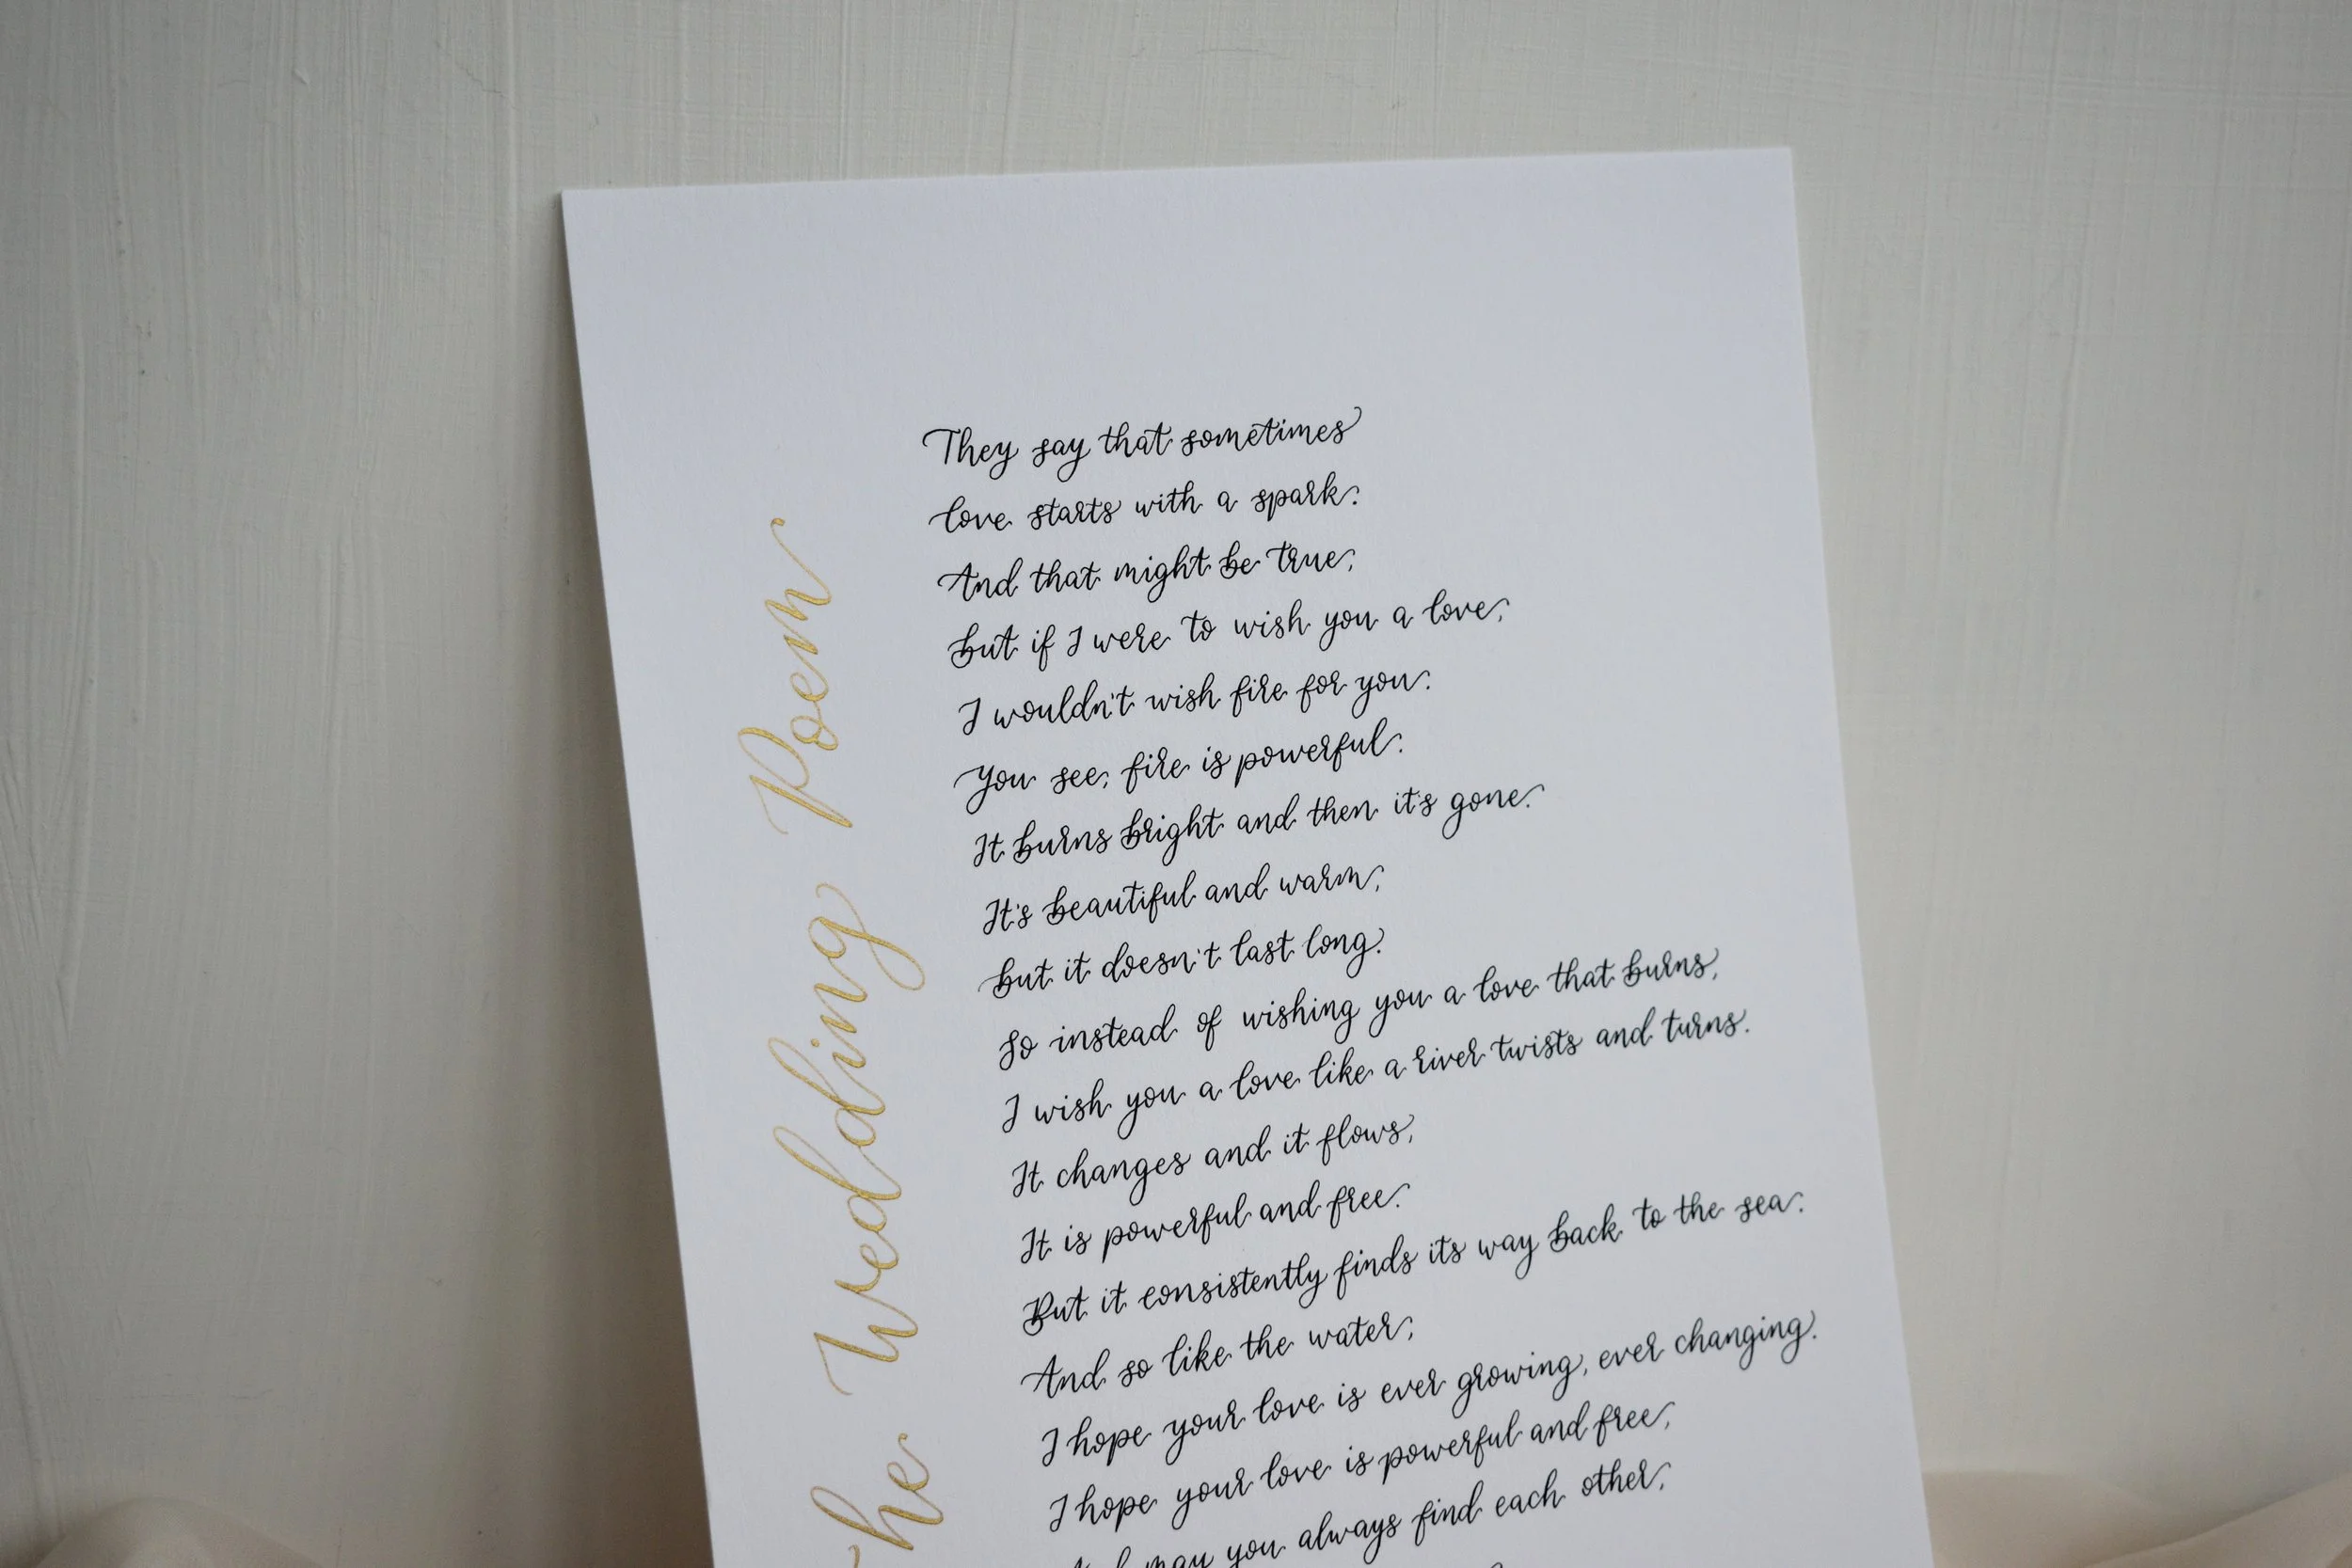 They say that sometimes
love starts with a spark.
And that might be true,
but if I were to wish you a love,
I wouldn't wish fire for you.
You see, fire is powerful.
It burns bright and then it's gone.
It's beautiful and warm,
but it doesn't last long.
So instead of wishing you a love that burns,
I wish you a love like a river twists and turns.
It changes and it flows,
It is powerful and free.
But it consistently finds its way back to the sea.
And so like the water,
I hope your love is ever growing, ever changing.
I hope your love is powerful and free,
may you always find each other,
he Wedding Poem